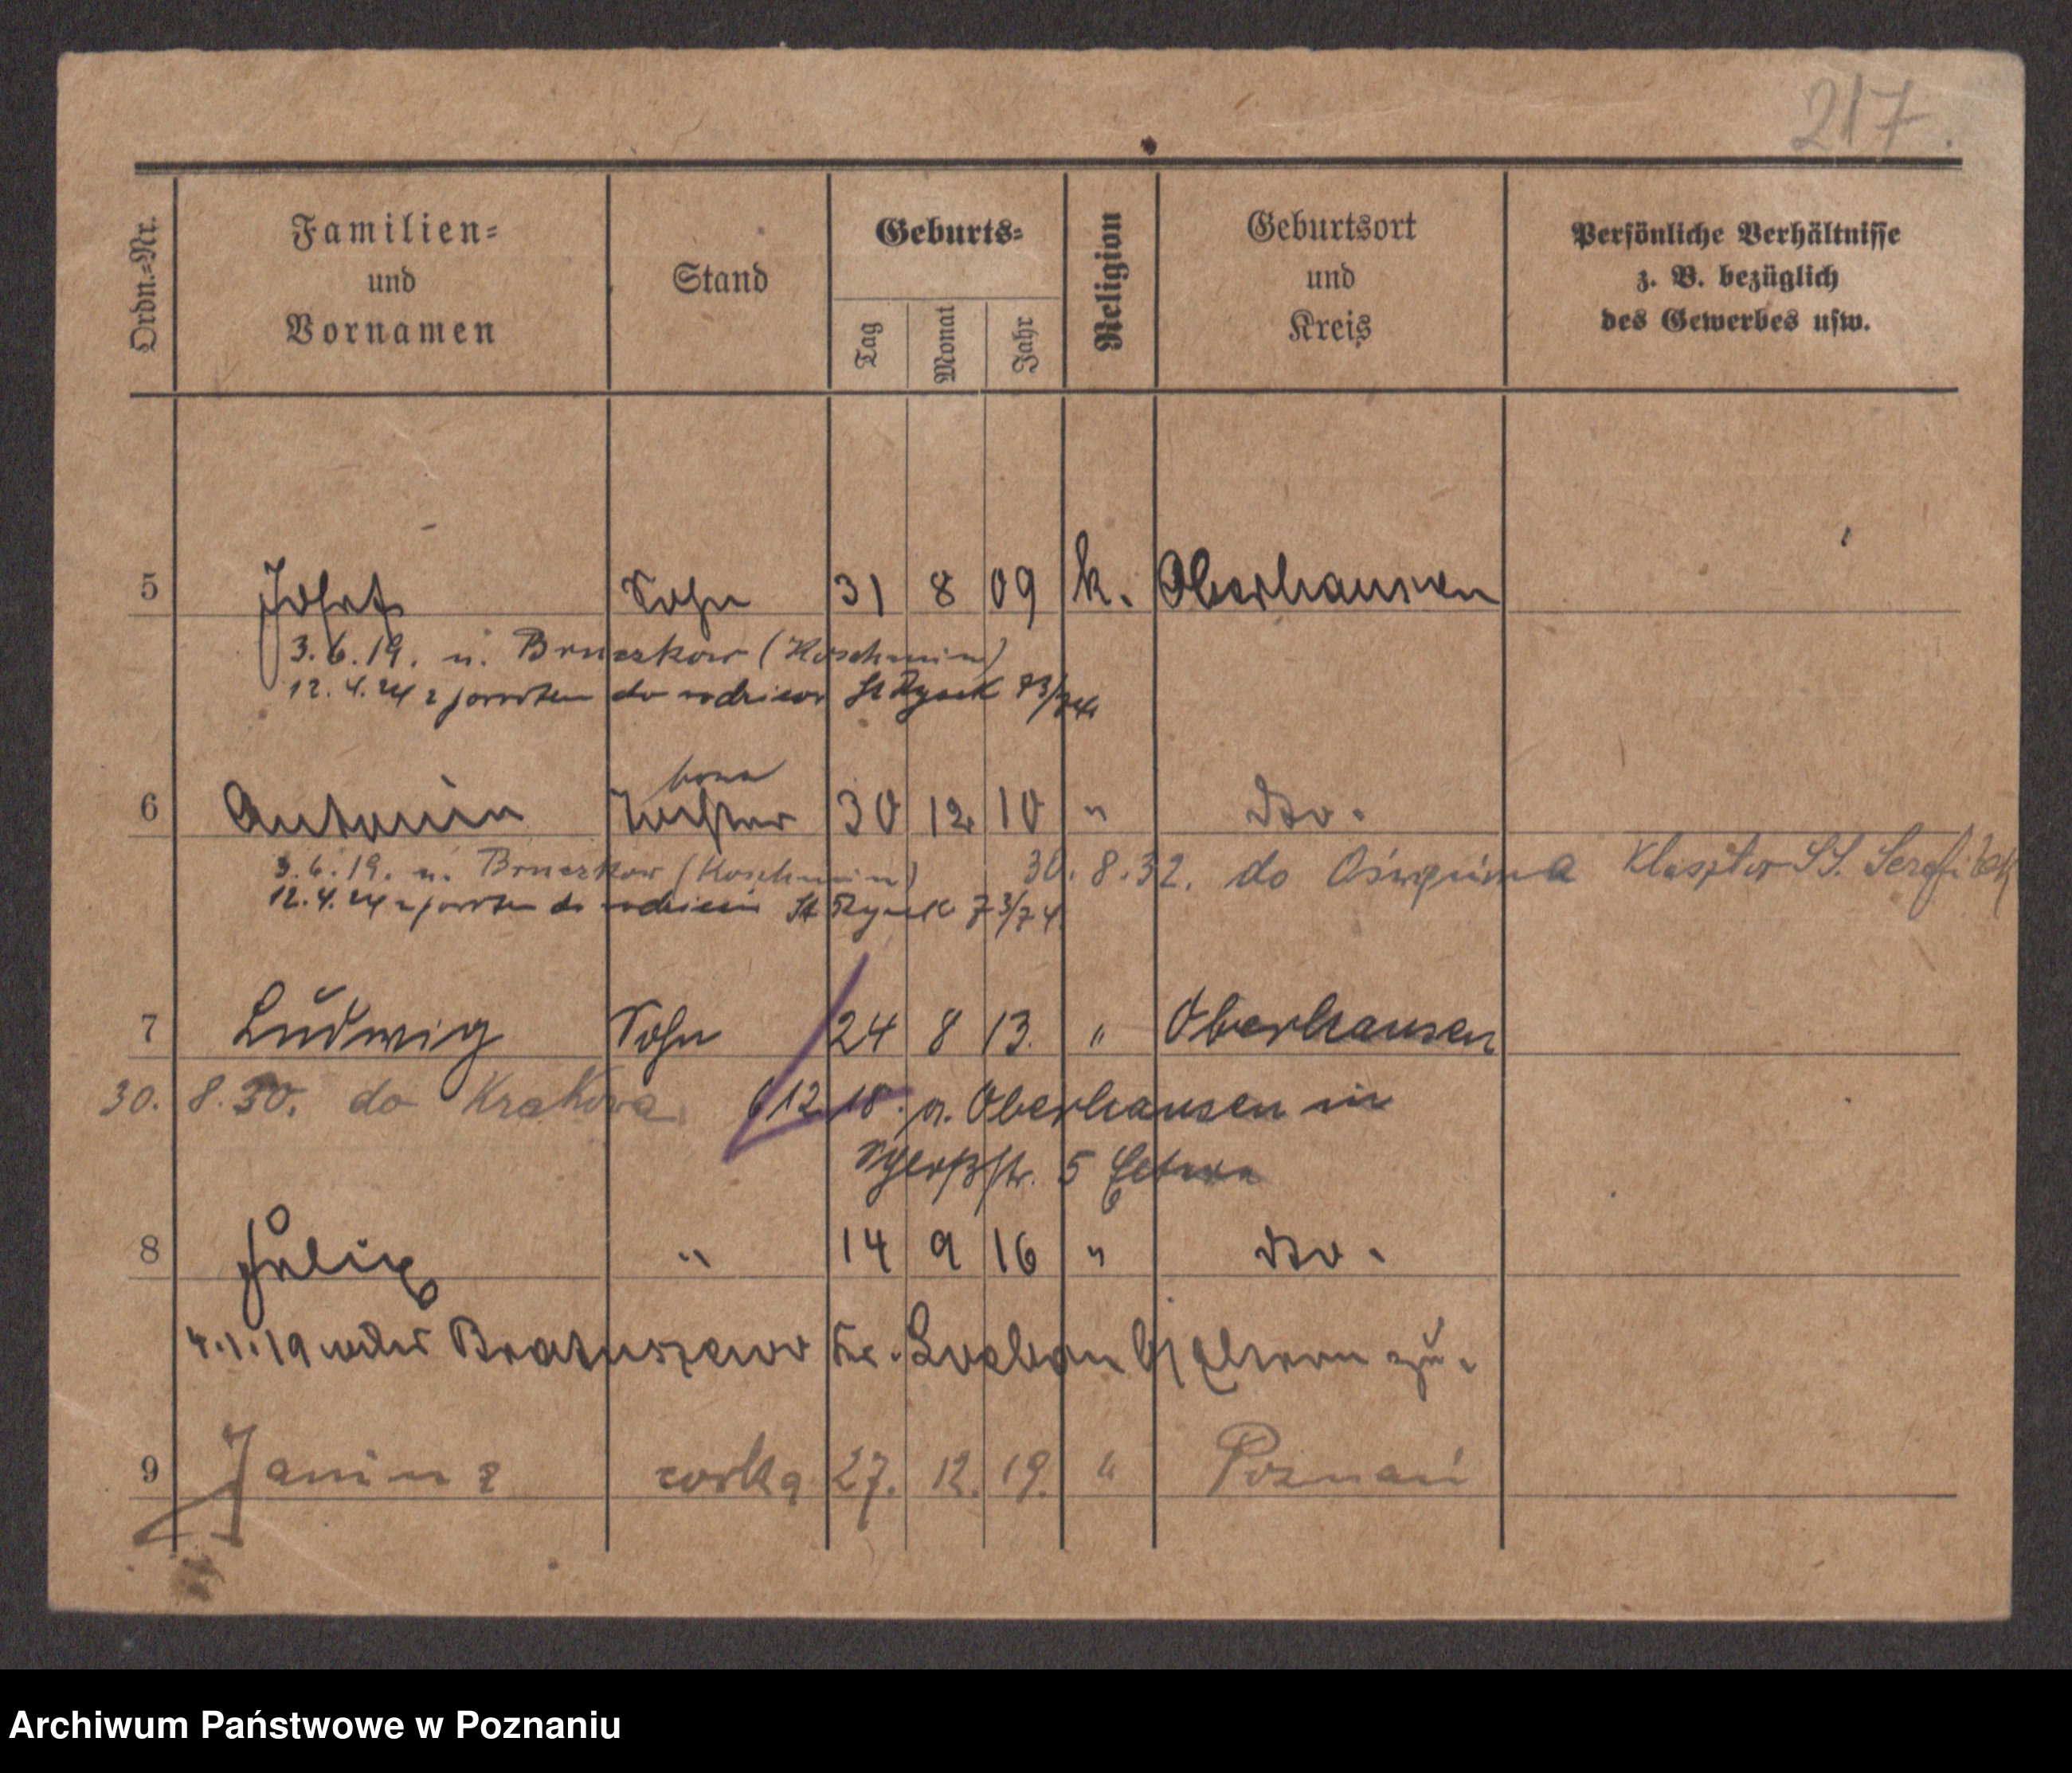 217.
Ordn.=Nr.
Familien=
und
Vornamen
Stand
Geburts=
Tag
Monat
Jahr
Religion
Geburtsort
und
Kreis
Persönliche Verhältnisse
z. B. bezüglich
des Gewerbes usw.
5 Josef Sohn 31 8 09 k. Oberhausen
3.6.19. n. Bruczkow (Koschmin)
12.4.24 z powrotem do rodziców St Rynek 73/74
6 Antonia Tochter 30 12 10 " dto.
3.6.19. n. Bruczkow (Koschmin) 30.8.32. do Oświęcima Klasztor SS. Serafitek
12.4.24 z powrotem do rodziców St Rynek 73/74
7 Ludwig Sohn 24 8 13. " Oberhausen
30. 8.30. do Krakowa 6 12 18. n. Oberhausen in
5 Eltern
8 Felix " 14 9 16 " dto.
4.1.19 wider Kr. Eltern zu.
9 Janina corka 27. 12. 19. " Poznań
Archiwum Państwowe w Poznaniu